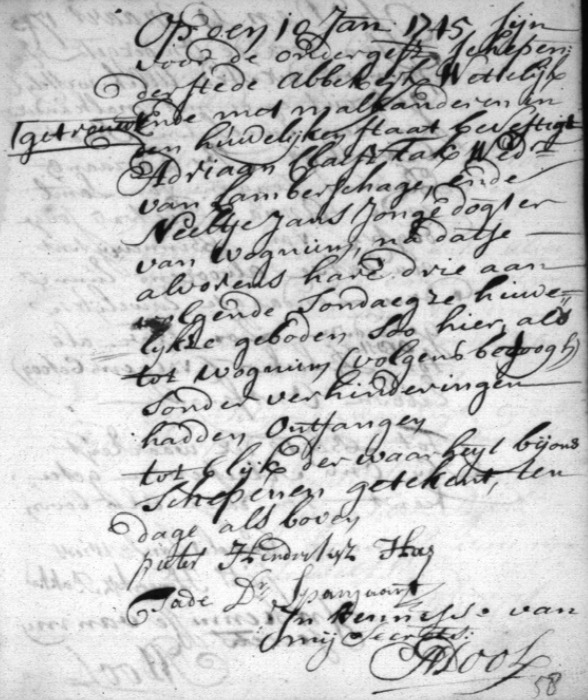 Op den 10 Jan: 1745 sijn
voor de ondergesz: schepen:
der stede Abbekerk Wettelijk
getrouwt
Ende met malkanderen in
een huwelijken staat bevestigt
Adriaan Claasz Tak Wedr=
van Lamberschage, ende
Neeltje Jans Jonge dogter
van Wognum, na datse
alvorens hare drie aan
volgende Sondaegze huwe=
lijkze geboden Soo hier, als
tot Wognum (volgens betoogh)
Sonder verhinderingen
hadden Ontfangen
tot blijk der waarheyt bij ons
Schepenen getekent, ten
dage als boven
pieter
Tade Dz. Spanjaart
In kennisse van
mij Secrets:
58